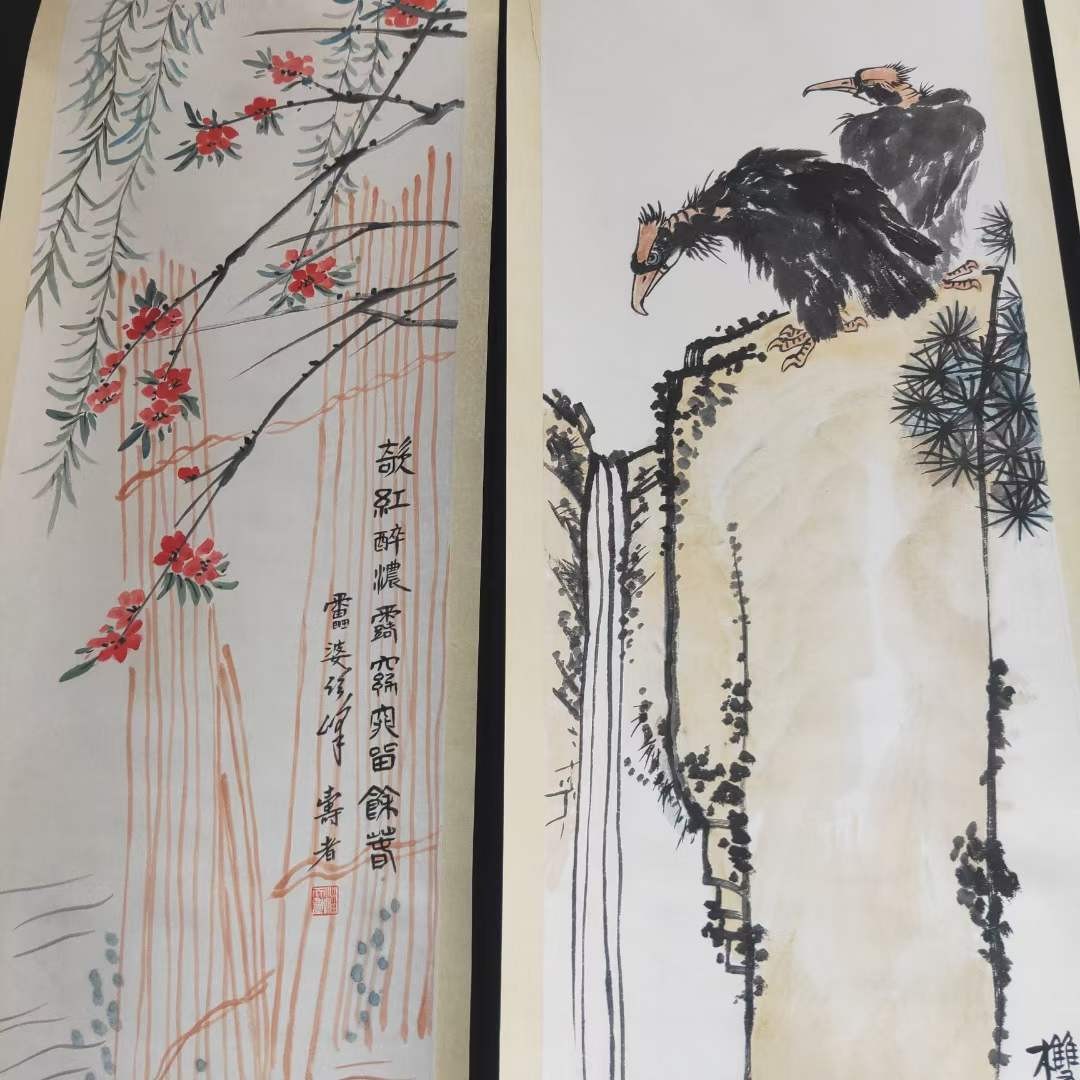 欹紅醉濃露窈窕留餘春
雷婆頭峰壽者